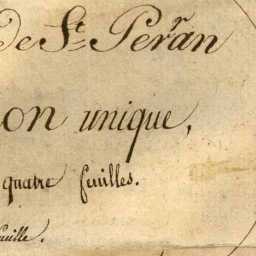 de St. Perran
on unique,
quatre feuilles.
feuille.